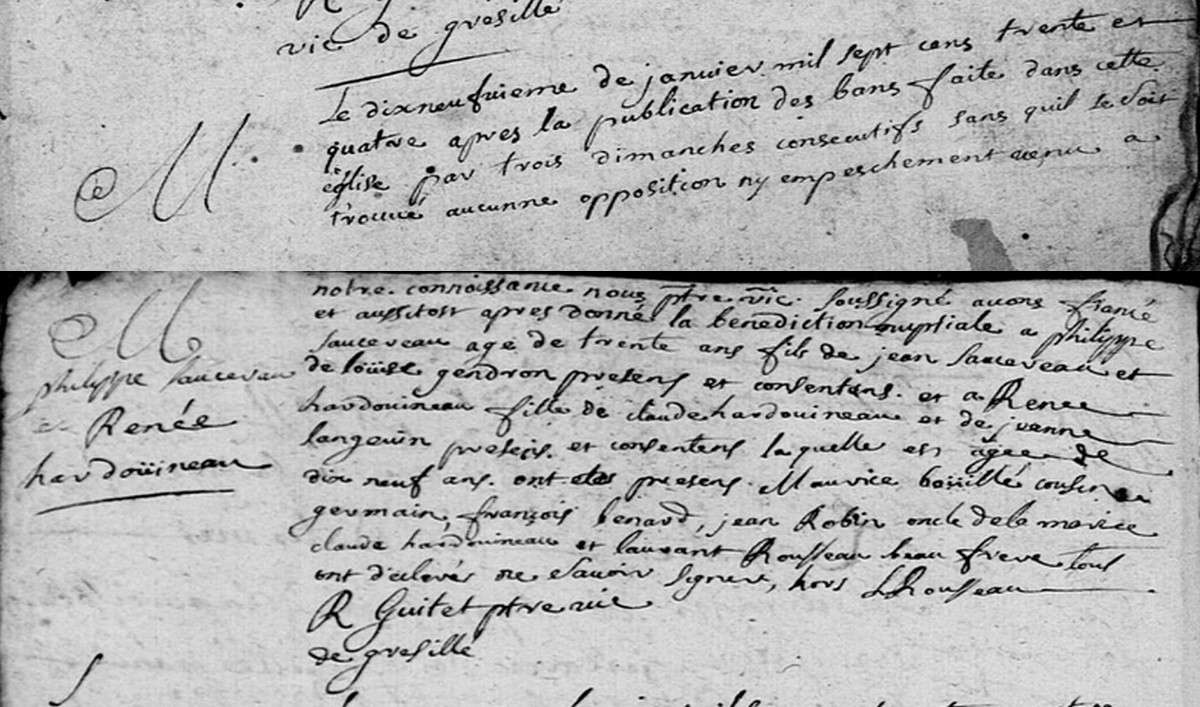 vic de gresille
Le dixneufvieme de janvier mil sept cens trente et
quatre apres la publication des bans faite dans cette
église par trois dimanches consecutifs sans quil se soit
trouvé aucunne opposition ny empeschement venu a
M
notre connoissance nous ptre vic. soussigné avons fiancé
et aussitost apres donné la benediction nuptiale a philippe
sauceveau agé de trente ans fils de jean sauceveau et
de loüise gendron presens et consentans. et a Renee
hardouineau fille de claude hardouineau et de jeanne
langevin presens et consentens laquelle est âgée de
dix neuf ans. ont etes presens Maurice boüillé cousin
germain, françois benard, jean Robin oncle dela mariée
claude hardouineau et laurant Rousseau beau frere tous
ont déclarés ne sçavoir signer, hors LRousseau
R Guitet ptre vic
de gresillé
M
philippe sauceveau
et Renée
hardoüineau